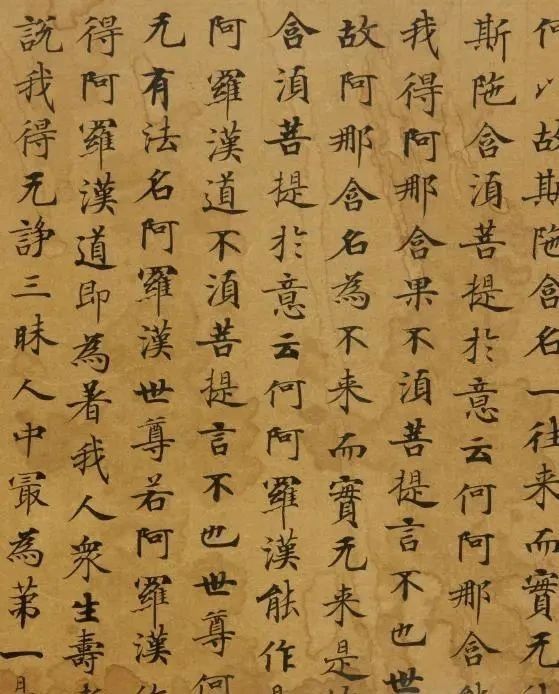 何以故斯陁含名一往来而實无往
斯陁含湏菩提扵意云何阿那含
我得阿那含果不湏菩提言不也世
故阿那含名為不来而實无来是
含湏菩提扵意云何阿羅漢能作
阿羅漢道不湏菩提言不也世尊何
无有法名阿羅漢世尊若阿羅漢作
得阿羅漢道即為著我人衆生壽
說我得无諍三昧人中冣為苐一